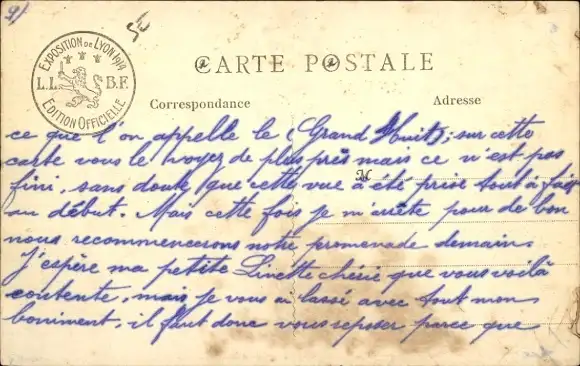 9)
EXPOSITION DE LYON 1914
L.L. B.F.
EDITION OFFICIELLE
CARTE POSTALE
Correspondance Adresse
M
ce que l'on appelle le (Grand Huit); sur cette
carte vous le voyez de plus près mais ce n'est pas
fini, sans doute que cette vue a été prise tout à fait
au début. Mais cette fois je m'arrête pour de bon
nous recommencerons notre promenade demain.
J'espère ma petite Linette chérie que vous voilà
contente, mais je vous ai lassé avec tout mon
boniment, il faut donc vous reposer parce que